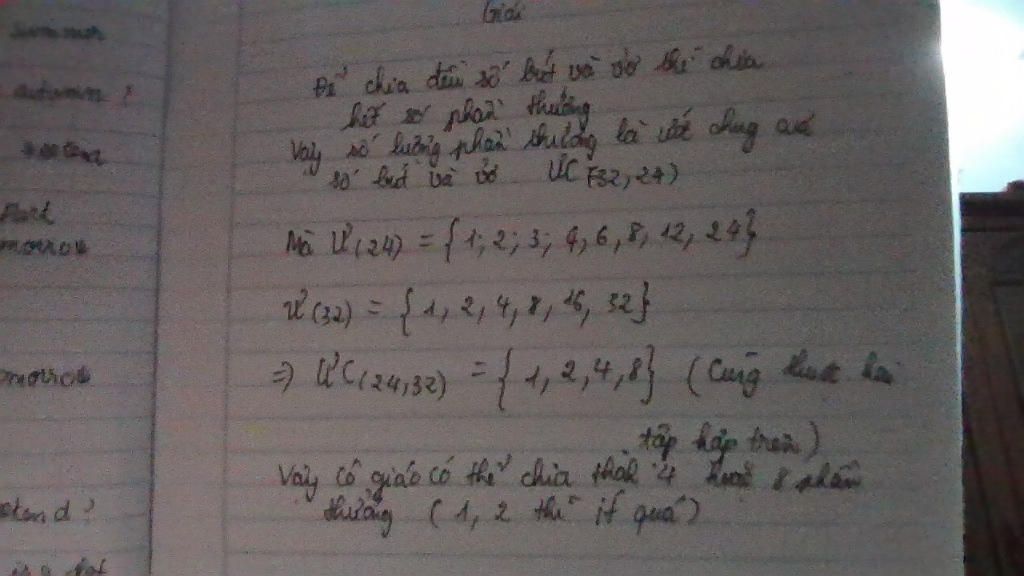 Giải
Để chia đều số bút và vở thì chia
hết số phần thưởng
Vậy số lượng phần thưởng là ước chung của
số bút và vở ƯC (32, 24)
Mà Ư(24) = { 1; 2; 3; 4, 6, 8, 12, 24}
Ư(32) = { 1, 2, 4, 8, 16, 32}
=> ƯC(24,32) = { 1, 2, 4, 8} ( Cùng thuộc hai
tập hợp trên )
Vậy cô giáo có thể chia thành 4 hoặc 8 phần
thưởng ( 1, 2 thì ít quá )
autumn ?
morrow
morrow
stand ?
is a